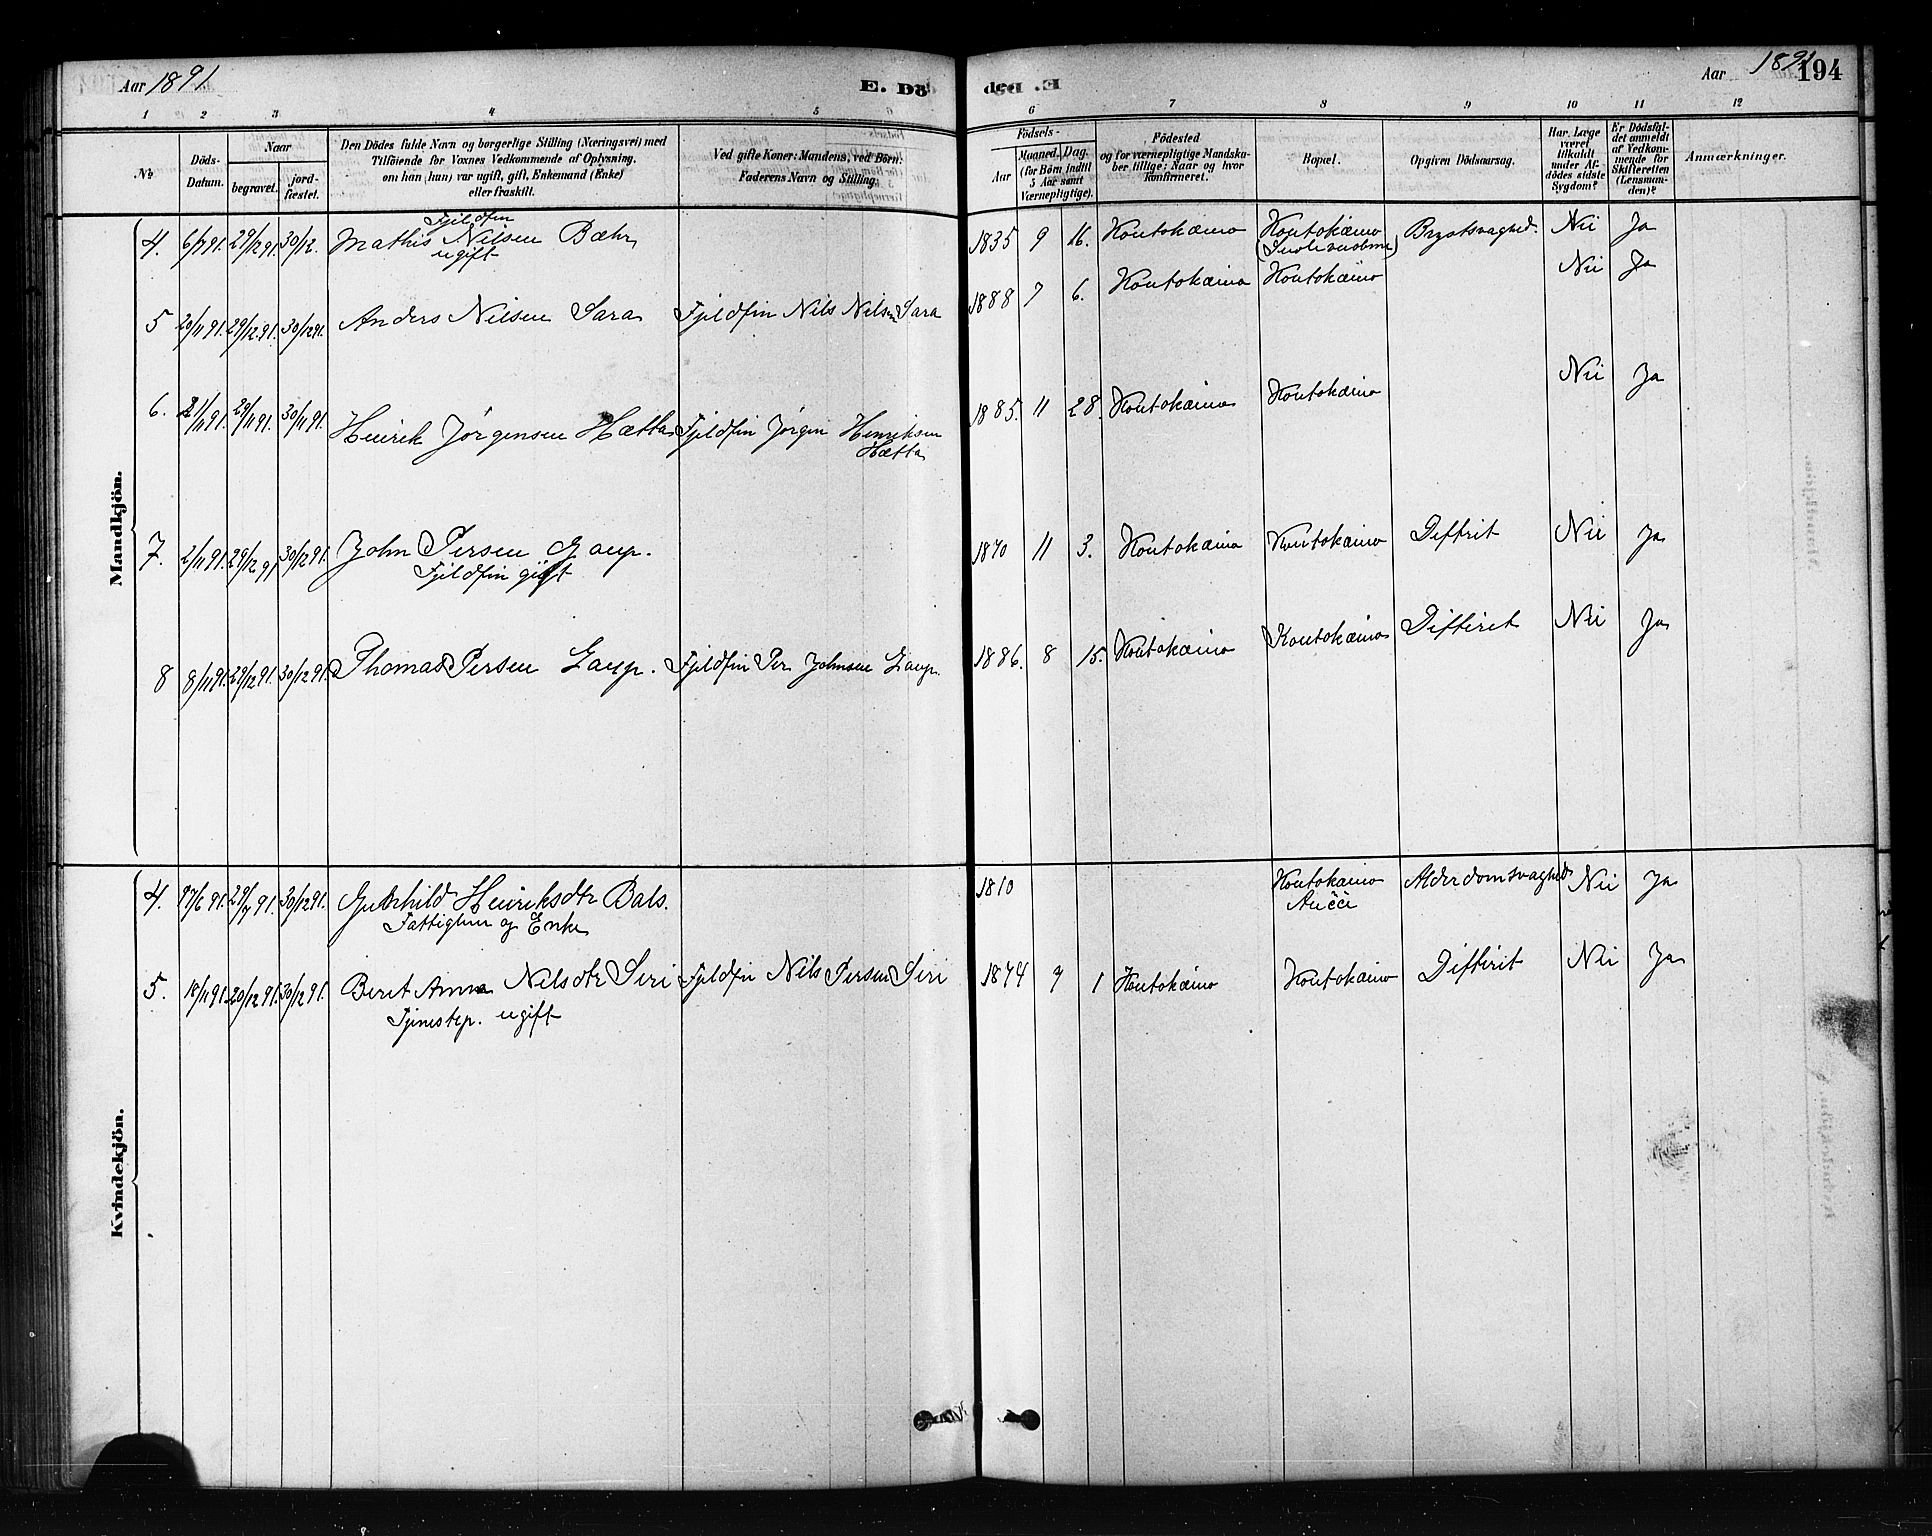 Aar 1891.
E. Dö
E. Död
Aar 1891
194
1 2 3 4 5 6 7 8 9 10 11 12
No
Döds-Datum.
Naar
begravet.
jord-fæstet.
Den Dödes fulde Navn og borgerlige Stilling (Næringsvei) med
Tilföiende for Voxnes Vedkommende af Oplysning,
om han (hun) var ugift, gift, Enkemand (Enke)
eller fraskilt.
Ved gifte Koner: Mandens, ved Börn:
Faderens Navn og Stilling.
Födsels-
Aar
Maaned. Dag.
(for Börn indtil
5 Aar samt
Værnepligtige).
Födested
og for værnepligtige Mandska-
ber tillige: Naar og hvor
konfirmeret.
Bopæl.
Opgiven Dödsaarsag.
Har Læge
været
tilkaldt
under Af-
dödes sidste
Sygdom?
Er Dödsfal-
det anmeldt
af Vedkom-
mende for
Skifteretten
(Lensman-
den)?
Anmærkninger.
Mandkjön.
Fjeldfin
4. 6/7 91. 29/12 91. 30/12. Mathis Nilsen Bæhr 1835 9 16. Koutokæino Koutokæino Brystsvaghed. Nei Ja
ugift
5 20/11 91. 29/12 91. 30/12 91. Anders Nilsen Sara Fjeldfin Nils Nilsen Sara 1888 7 6. Koutokæino Koutokæino Nei Ja
6. 21/11 91. 29/11 91. 30/11 91. Henrik Jørgensen Hætta Fjeldfin Jørgen Henriksen 1885. 11 28. Koutokæino Koutokæino Nei Ja
Hætta
7. 2/11 91. 29/12 91 30/12 91. John Persen Gaup. 1870 11 3. Koutokæino Koutokæino Difterit Nei Ja
Fjeldfin gift
8 8/11 91. 29/12 91. 30/12 91. Thomas Persen Gaup. Fjeldfin Per Johnsen Gaup. 1886. 8 15. Koutokæino Koutokæino Difterit Nei Ja
Kvindekjön.
4. 17/6 91. 30/12 91. Henriksdtr Bals. 1810 Koutokæino Alderdomsvaghed Nei Ja
Fattiglem og Enke Aučči
5. 18/11 91. 20/12 91. 30/12 91. Berit Anna Nilsdtr Siri Fjeldfin Nils Persen Siri 1874 9 1 Koutokæino Koutokæino Difterit Nei Ja
Tjenestep. ugift